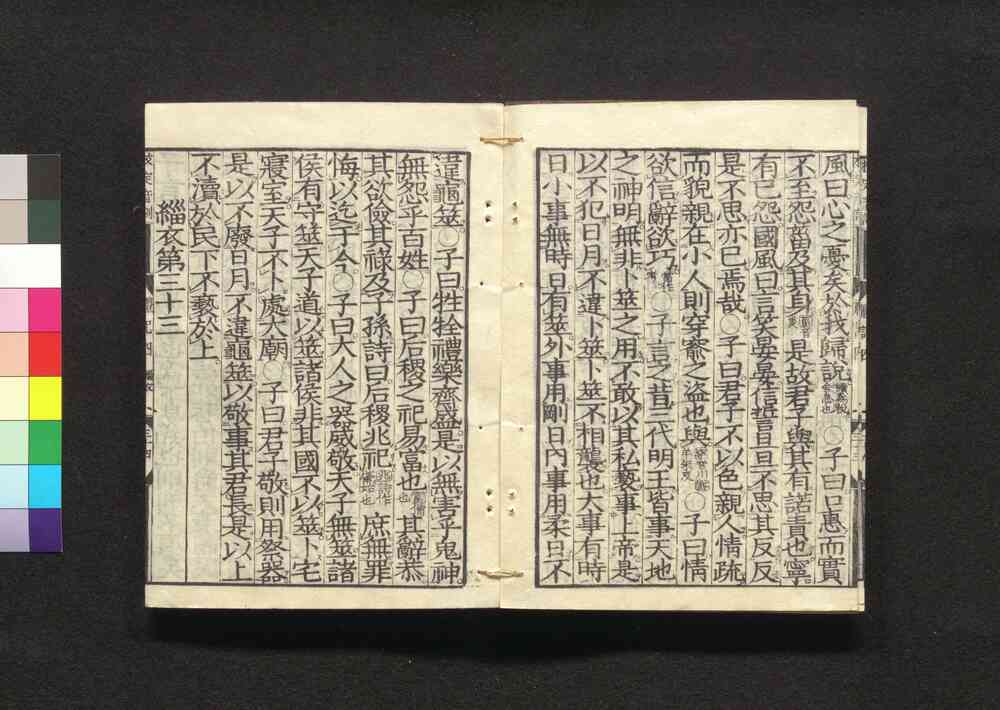 風曰心之憂矣於我歸說○子曰口惠而實
不至怨菑及其身是故君子與其有諾責也寧
有已怨國風曰言笑晏晏信誓旦旦不思其反反
是不思亦已焉哉○子曰君子不以色親人情疏
而貌親在小人則穿窬之盜也與○子曰情
欲信辭欲巧○子言之昔三代明王皆事天地
之神明無非卜筮之用不敢以其私褻事上帝是
以不犯日月不違卜筮卜筮不相襲也大事有時
日小事無時日有筮外事用剛日內事用柔日不
違龜筮○子曰牲牷禮樂齊盛是以無害乎鬼神
無怨乎百姓○子曰后稷之祀易富也其辭恭
其欲儉其祿及子孫詩曰后稷兆祀庶無罪
悔以迄于今○子曰大人之器威敬天子無筮諸
侯有守筮天子道以筮諸侯非其國不以筮卜宅
寢室天子不卜處大廟○子曰君子敬則用祭器
是以不廢日月不違龜筮以敬事其君長是以上
不瀆於民下不褻於上
緇衣第三十三